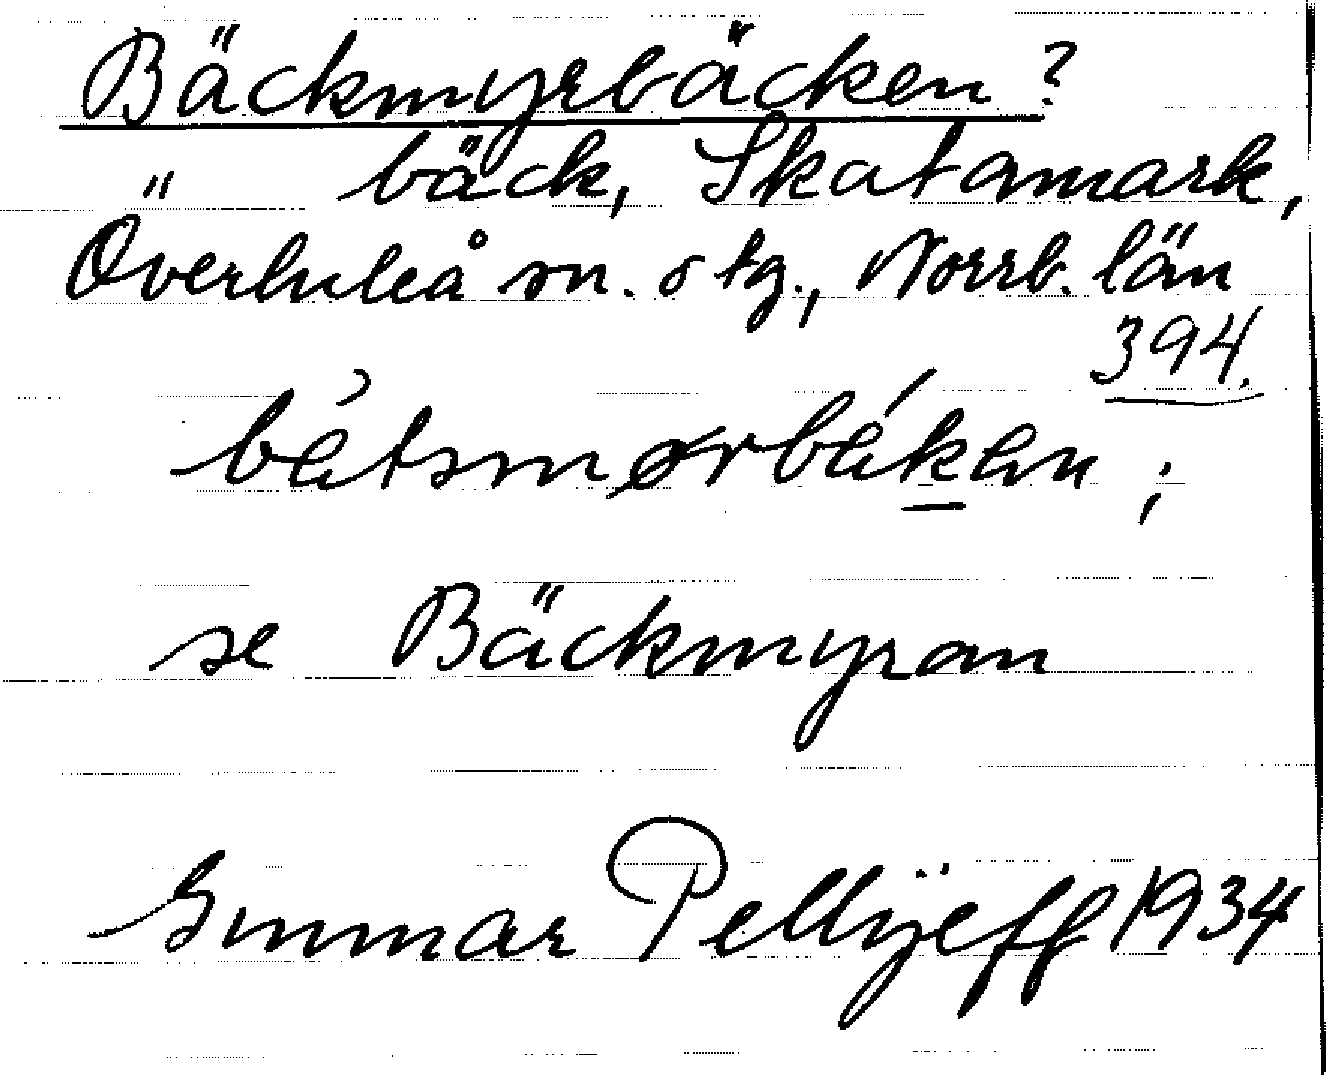 Bäckmyrbäcken?
" bäck, Skatamark,
Överluleå sn. o tg., Norrb. län
394.
se Bäckmyran
Gunnar Pellijeff 1934